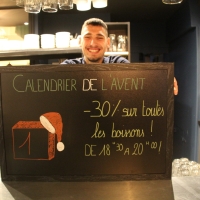 CALENDRIER DE L'AVENT
-30% sur toutes
les boissons !
DE 18"30 A 20"00 !
1